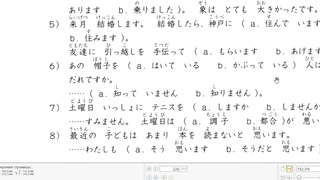 あります　b. 乗りました）。　象は　とても　大きかったです。
5）来月　結婚します。　結婚したら、神戸に（a. 住んで　います
b. 住みます）。
友達に　引っ越しを　手伝って（a. もらいます　b. あげます
6）あの　帽子を（a. はいて　いる　b. かぶって　いる）人は
だれですか。
……（a. 知って　いません　b. 知りません）。
7）土曜日　いっしょに　テニスを（a. しますか　b. しませんか
……すみません。　土曜日は（a. 調子　b. 都合）が　悪い
8）最近の　子どもは　あまり　本を　読まないと　思います。
……わたしも（a. そう　思います　b. そうだと　思います